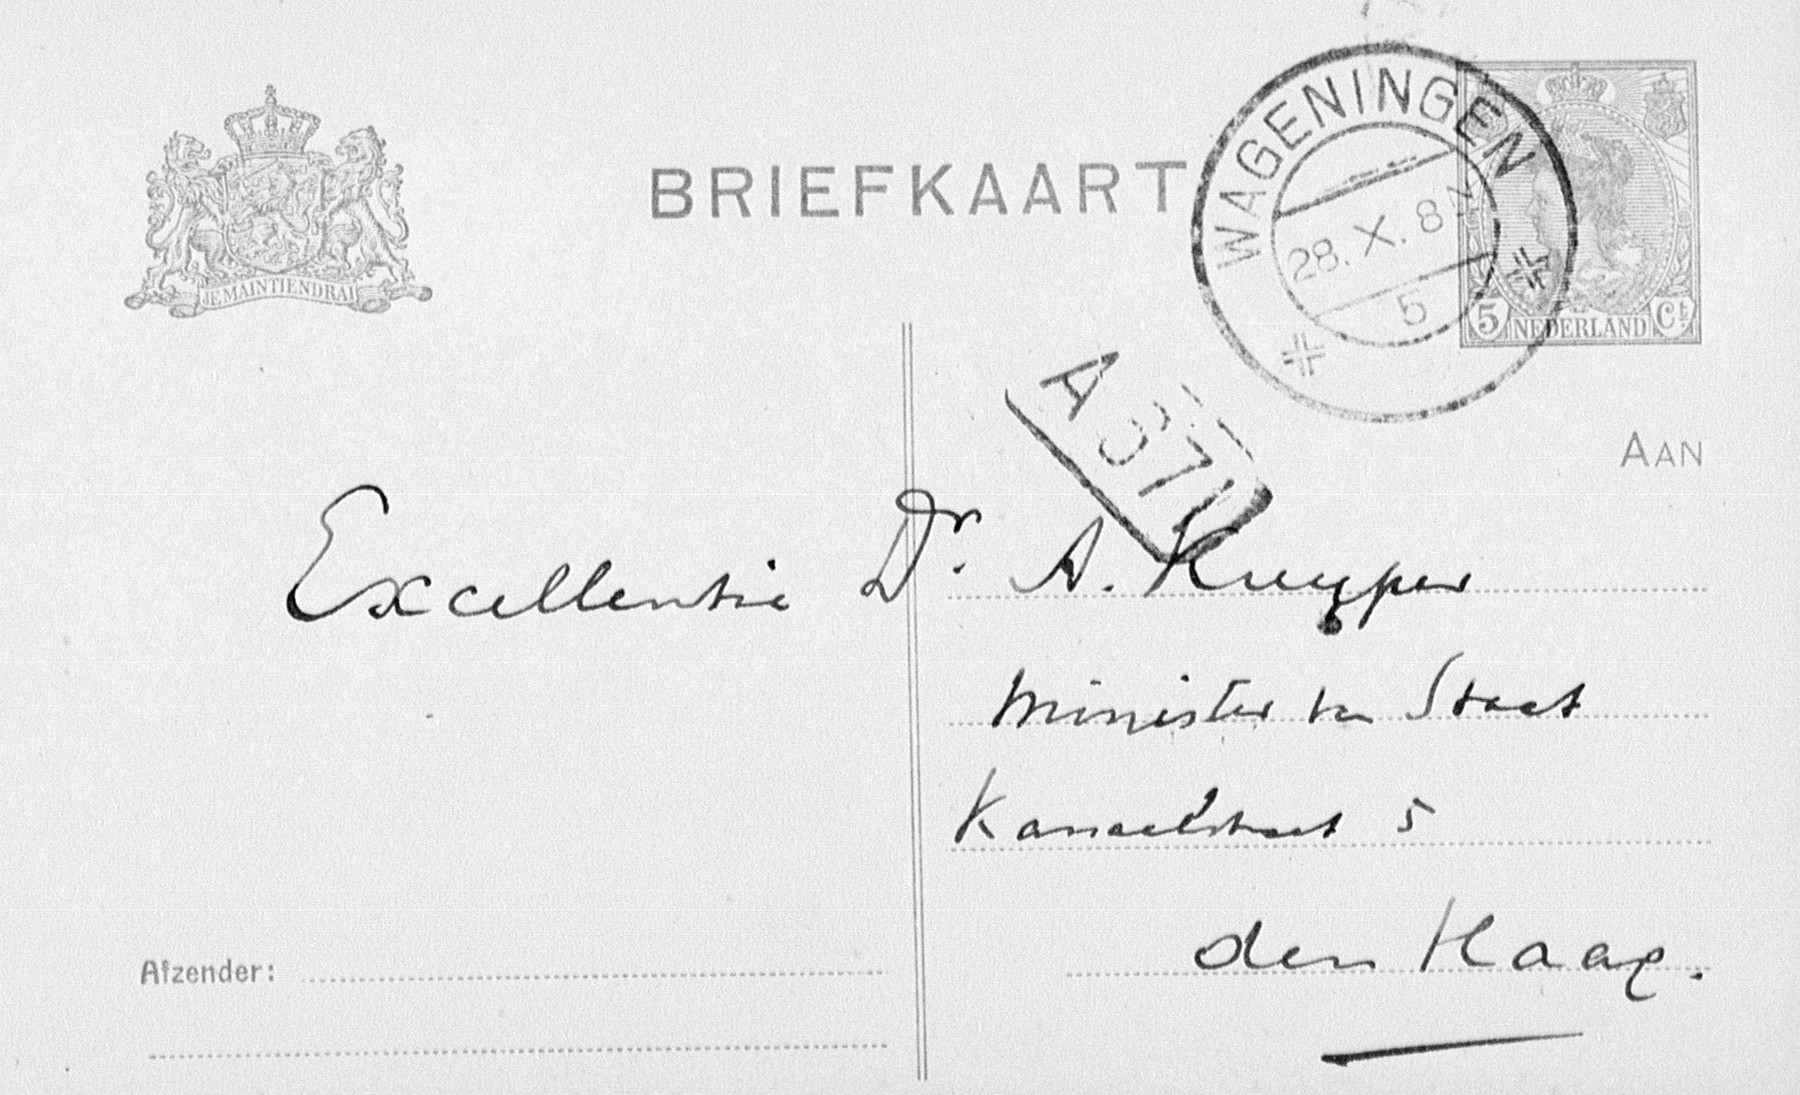 JE MAINTIENDRAI
BRIEFKAART
WAGENINGEN
28. X. 8
5
5 NEDERLAND Ct
A 67
AAN
Excellentie Dr. A. Kuyper
Minister van Staat
Kanaalstraat 5
den Haag.
Afzender: